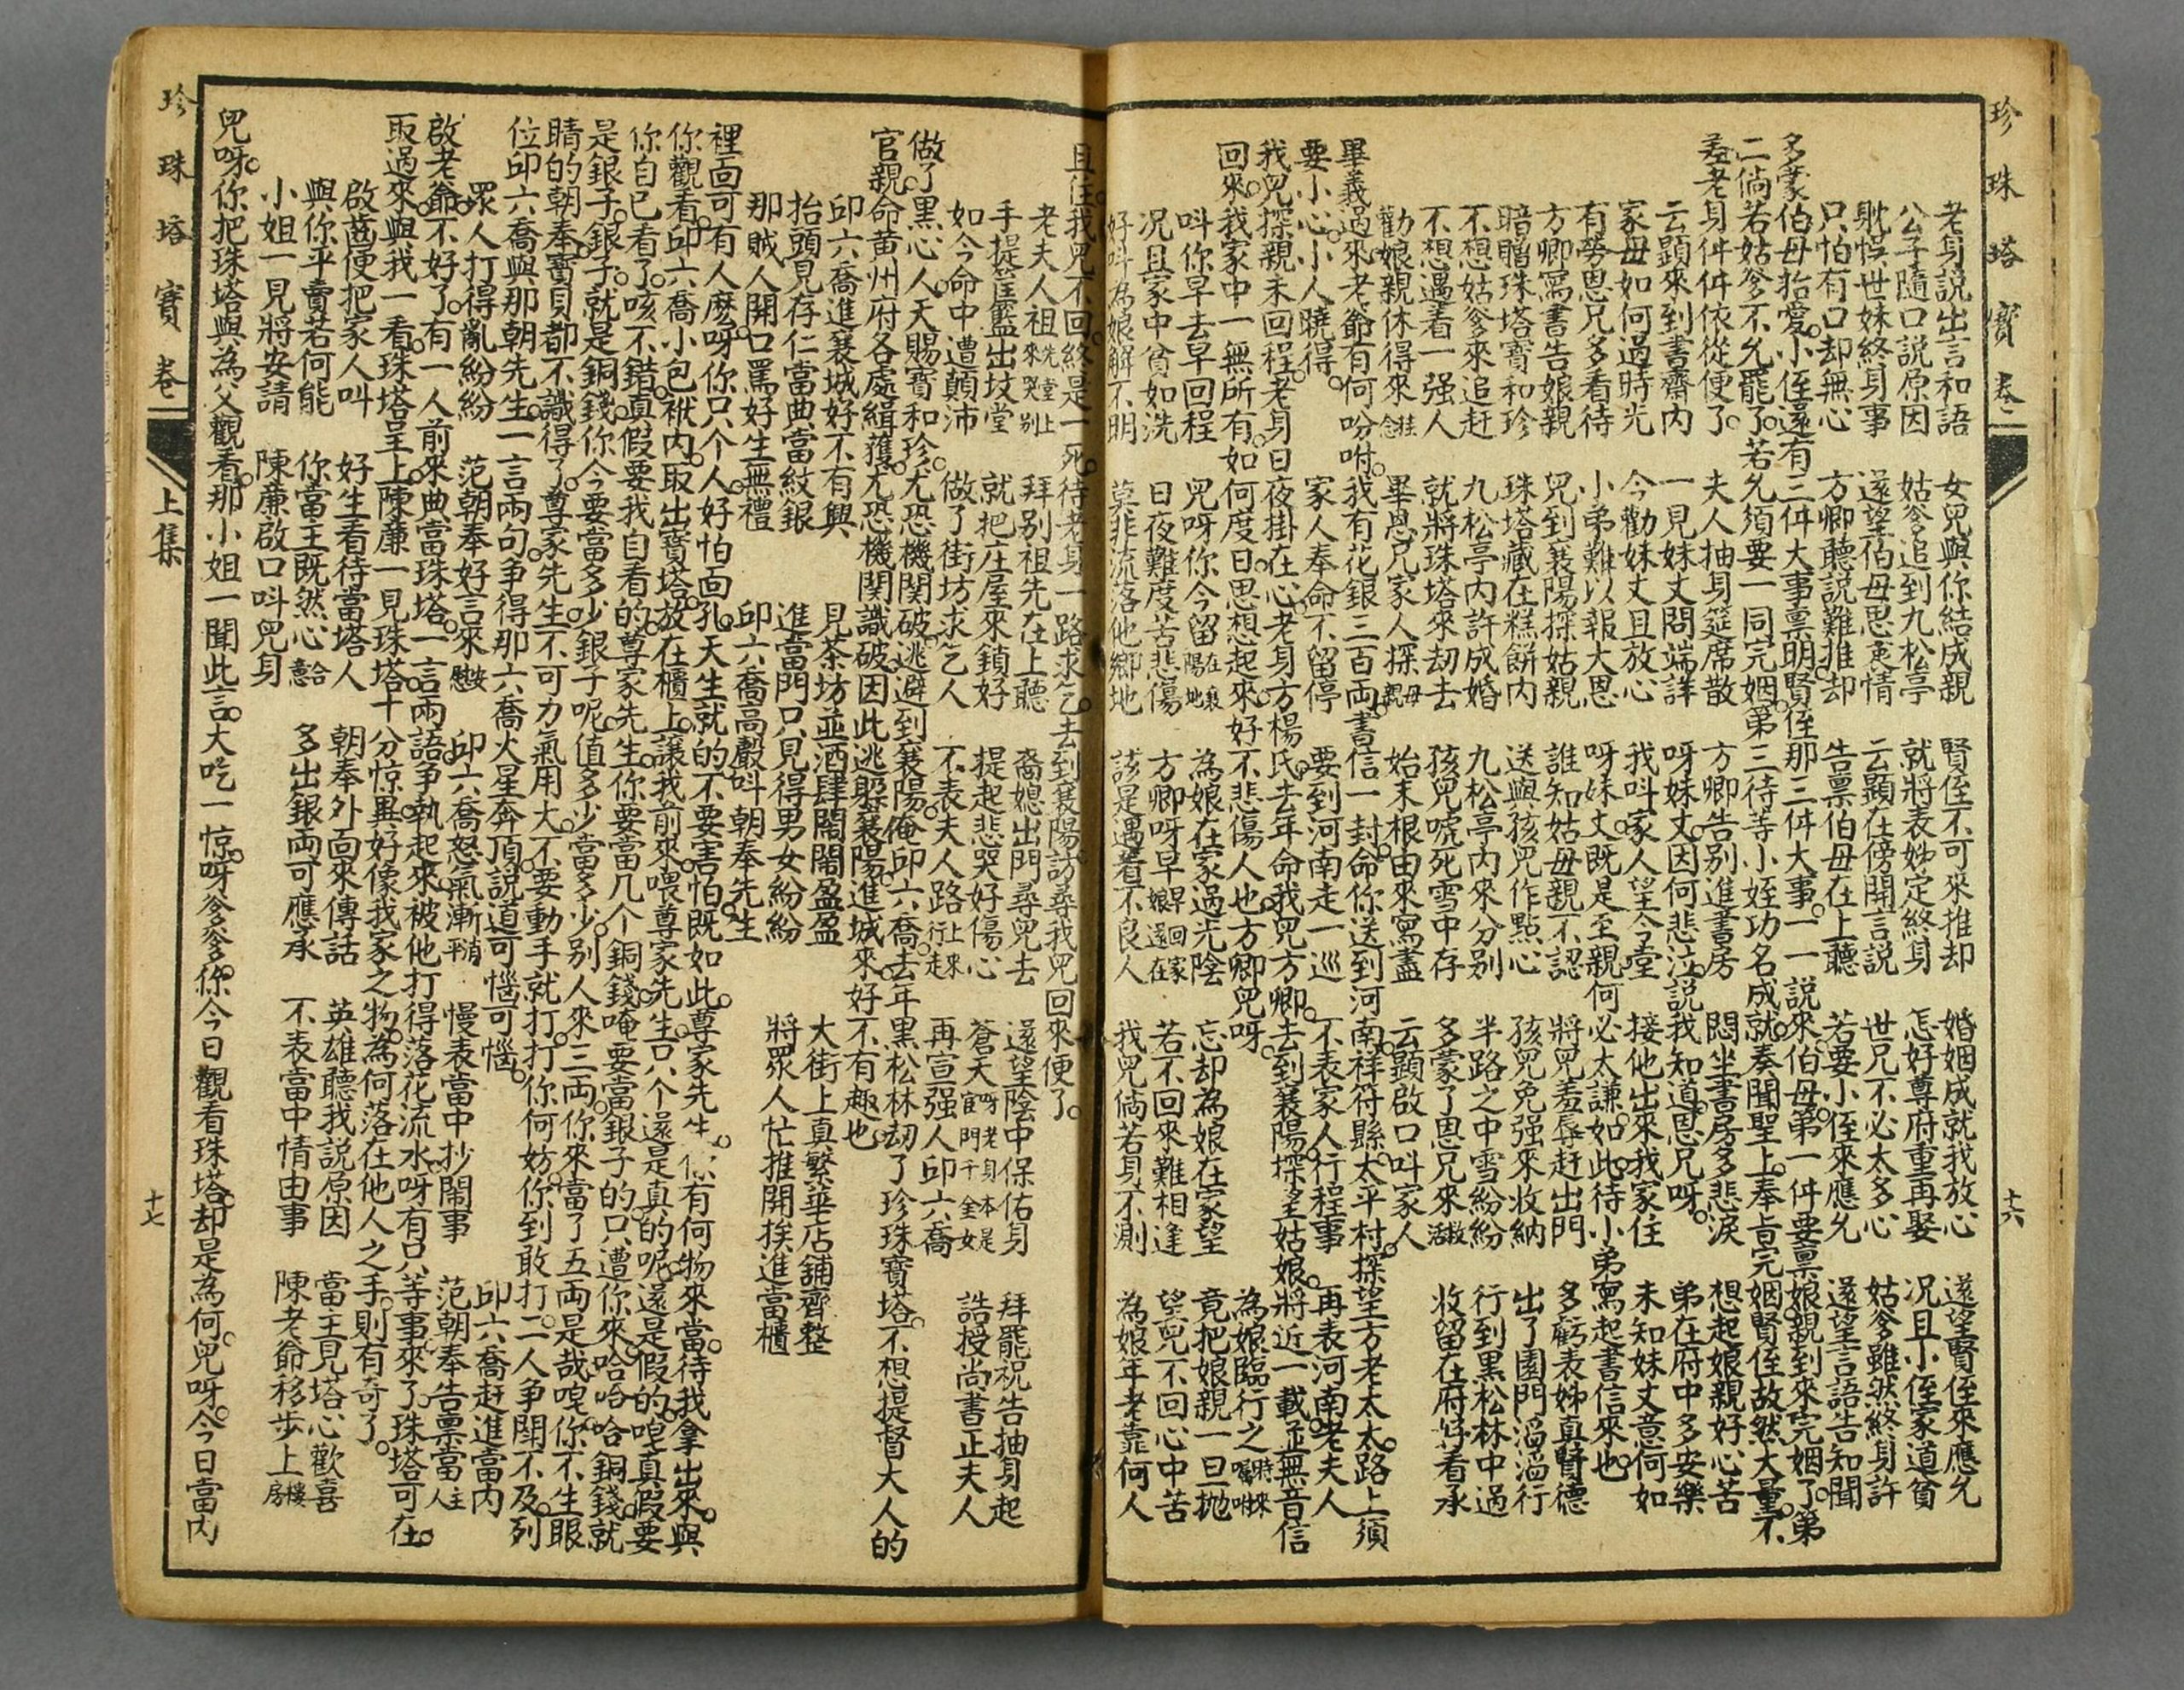 珍珠塔寶卷二
十六
老身説出言和語 女兒與你結成親 賢侄不可來推却 婚姻成就我放心 遂望賢侄來應允
公子隨口説原因 姑爹追到九松亭 就將表姊定終身 怎好尊府重再娶 况且小侄家道貧
躭悮世妹終身事 遂望伯母思衷情 云顕在傍開言説 世兄不必太多心 姑爹雖然終身許
只怕有口却無心 方卿聽説難推却 告禀伯母在上聽 若要小侄來應允 遂望言語告知聞
多蒙伯母抬愛。小侄還有三件大事禀明。賢侄那三件大事。一一説來。伯母。第一件要禀娘親到來完姻了。第
二倘若姑爹不允罷了。若允須要一同完姻。第三待等小姪功名成就。奏聞聖上。奉旨完姻。賢侄故然大量。不
差老身件件依從便了。 夫人抽身筵席散 方卿告别進書房 悶坐書房多悲淚 想起娘親好心苦
云顕來到書齋内 一見妹丈問端詳 呀妹丈因何悲泣説 我知道恩兄呀。 弟在府中多安樂
家母如何過時光 今勸妹丈且放心 我呌家人望今堂 接他出來我家住 未知妹丈意何如
有勞恩兄多看待 小弟難以報大恩 呀妹丈既是至親何必太謙。如此待小弟寫起書信來也。
方卿寫書告娘親 兒到襄陽探姑親 誰知姑母親不認 將兒羞辱赶出門 多虧表姊真賢德
暗贈珠塔寶和珍 珠塔藏在糕餅内 送與孩兒作點心 孩兒免强來收納 出了園門滔滔行
不想姑爹來追赶 九松亭内許成婚 九松亭内來分别 半路之中雪紛紛 行到黑松林中過
不想遇着一强人 就將珠塔來刧去 孩兒唬死雪中存 多蒙了恩兄來救活 收留在府好看承
勸娘親休得來掛念 畢恩兄家人探母親 始末根由來寫盡 云顕啟口呌家人
畢義過來老爺有何吩咐。我有花銀三百両。書信一封。命你送到河南。祥符縣太平村。探望方老太太。路上須
要小心。小人曉得。 家人奉命不留停 要到河南走一巡 不表家人行程事 再表河南老夫人
我兒探親未回程。老身日夜掛在心。老身方楊氏。去年命我兒方卿。去到襄陽。探望姑娘。將近一載。並無音信
回來。我家中一無所有。如何度日。思想起來。好不悲傷人也。方卿兒呀。 為娘臨行之時來囑咐
呌你早去早回程 兒呀你今留在襄陽地 為娘在家過光陰 忘却為娘在家望 竟把娘親一旦抛
况且家中貧如洗 日夜難度苦悲傷 方卿呀早早回家娘還在 若不回來難相逢 望兒不回心中苦
好呌為娘解不明 莫非流落他鄉地 該是遇着不良人 我兒倘若身不測 為娘年老靠何人
且住我兒不回。終是一死。待老身一路求乞。去到襄陽。訪尋我兒回來便了。
老夫人祖先堂上來哭别 拜别祖先在上聽 裔媳出門尋兒去 遂望陰中保佑身 拜罷祝告抽身起
手提筐籃出坟堂 就把庄屋來鎖好 提起悲哭好傷心 蒼天呀老身本是官門千金女 誥授尚書正夫人
如今命中遭顛沛 做了街坊求乞人 不表夫人路上來行走 再宣强人邱六喬
做了黑心人。天賜寶和珍。尤恐機関破。逃避到襄陽。俺邱六喬。去年黑松林刧了珍珠寶塔。不想提督大人的
官親。命黄州府各處緝獲。尤恐機関識破。因此逃躱襄陽。進城來好不有趣也。
邱六喬進襄城好不有興 見茶坊並酒肆閙閙盈盈 大街上真繁華店舖齊整
抬頭見存仁當典當紋銀 進當門只見得男女紛紛 將眾人忙推開挨進當櫃
那賊人開口罵好生無禮 邱六喬高聲呌朝奉先生
裡面可有人麽。呀你只个人。好怕面孔。天生就的不要害怕。既如此。尊家先生。你有何物來當。待我拿出來。與
你觀看。邱六喬小包袱内。取出寶塔。放在櫃上。讓我前來喂尊家先生。只个還是真的呢。還是假的。㖞真假要
你自已看了。咳不錯。真假要我自看的。尊家先生。你要當几个銅錢。唵要當銀子的。只遭你來。哈哈哈銅錢就
是銀子。銀子。就是銅錢。你今要當多少銀子呢。值多少當多少。别人來三両。你來當了五両。是哉。㖞你不生眼
睛的朝奉。寶貝都不識得了。尊家先生。不可力氣用大。不要動手就打。打你何妨。你到敢打。二人争閙不及。列
位邱六喬與那朝先生。一言兩句。争得那六喬火星奔頂。説道可惱可惱。 邱六喬赶進當内
眾人打得亂紛紛 范朝奉好言來安慰 邱六喬怒氣漸消平 慢表當中抄閙事 范朝奉告禀當主人
啟老爺。不好了。有一人前來典當珠塔。一言兩語。争執起來。被他打得落花流水。呀有只等事來了。珠塔可在。
取過來。與我一看。珠塔呈上。陳廉一見珠塔。十分惊異。好像我家之物。為何落在他人之手。則有奇了。
啟啚便把家人叫 好生看待當塔人 朝奉外面來傳話 英雄聽我説原因 當主見塔心歡喜
與你平賣若何能 你當主既然心合意 多出銀両可應承 不表當中情由事 陳老爺移步上樓房
小姐一見將安請 陳廉啟口呌兒身
兒呀。你把珠塔與為父觀看。那小姐一聞此言。大吃一惊。呀爹爹。你今日觀看珠塔。却是為何。兒呀。今日當内
珍珠塔寶卷一 上集
十七